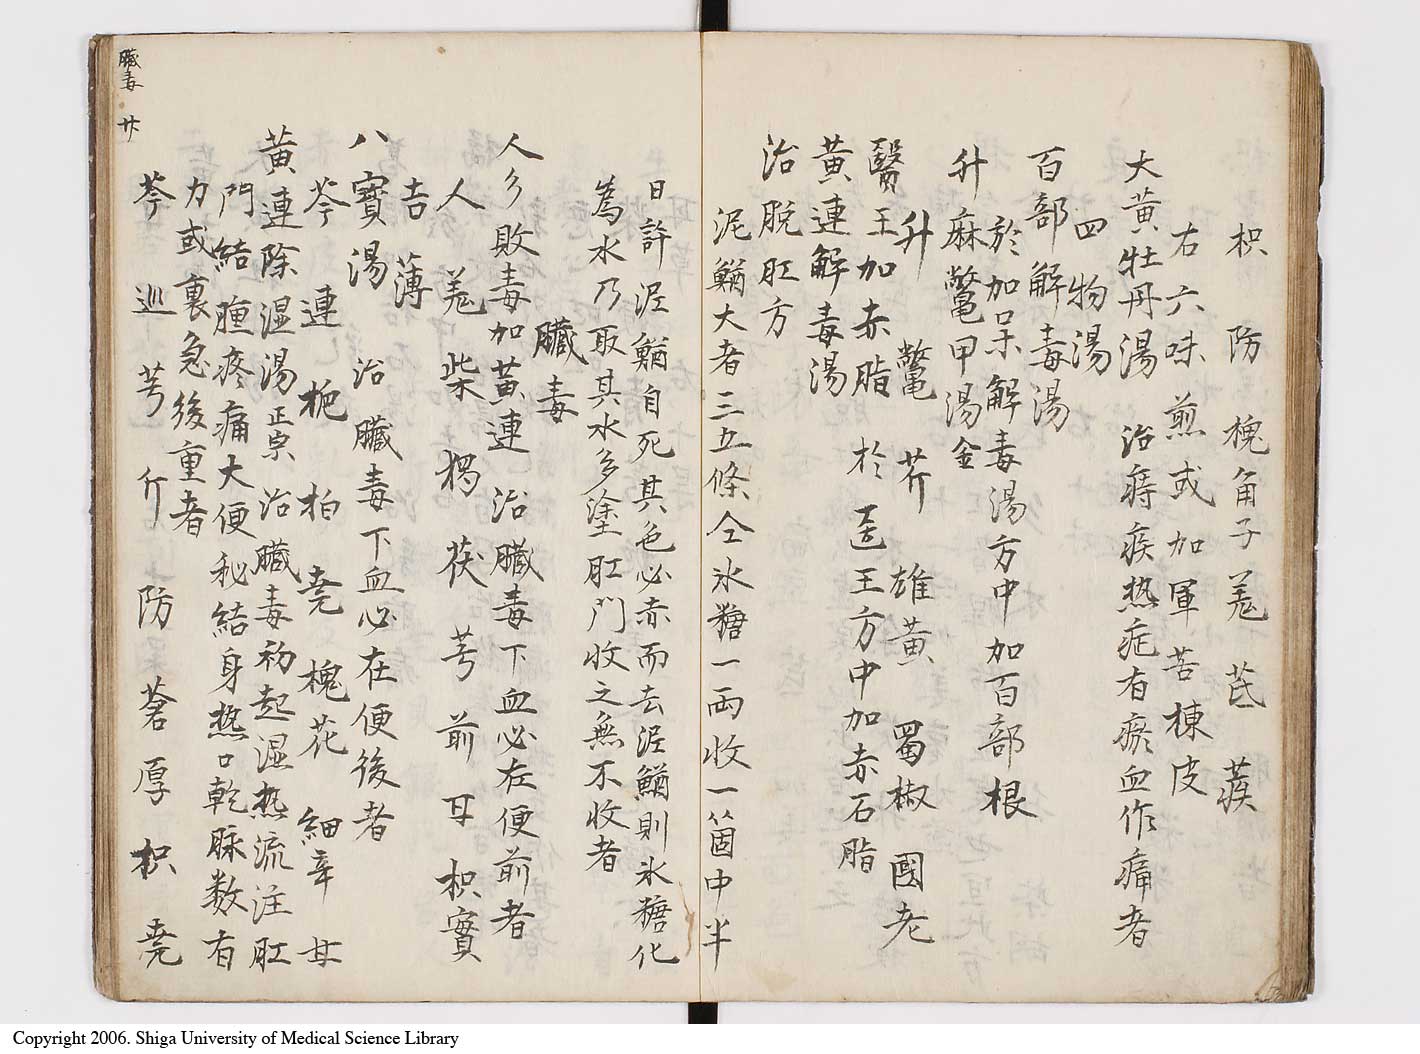 枳 防 槐角子 羗 芪 蒺
右六味煎或加軍苦楝皮
大黄牡丹湯 治痔疾热症有瘀血作痛者
四物湯
百部解毒湯
於加味解毒湯方中加百部根
升麻鼈甲湯 金
升 鼈 芥 雄黄 蜀椒 國老
醫王加赤脂 於醫王方中加赤石脂
黄連解毒湯
治脱肛方
泥鰌大者三五條仝氷糖一両收一箇中半
日許泥鰌自死其色必赤而去泥鰌則氷糖化
為水乃取其水多塗肛門收之無不收者
臟毒
人参敗毒加黄連 治臟毒下血必在便前者
人 羗 柴 獨 茯 芎 前 甘 枳實
吉 薄
八寳湯 治臟毒下血必在便後者
芩 連 梔 柏 堯 槐花 細辛 甘
黄連除湿湯 正宗 治臟毒初起湿热流注肛
門結腫疼痛大便秘結身热口乾脉数有
力或裏急後重者
芩 巡 芎 亇 防 蒼 厚 枳 堯
臟毒 廿
Copyright 2006. Shiga University of Medical Science Library